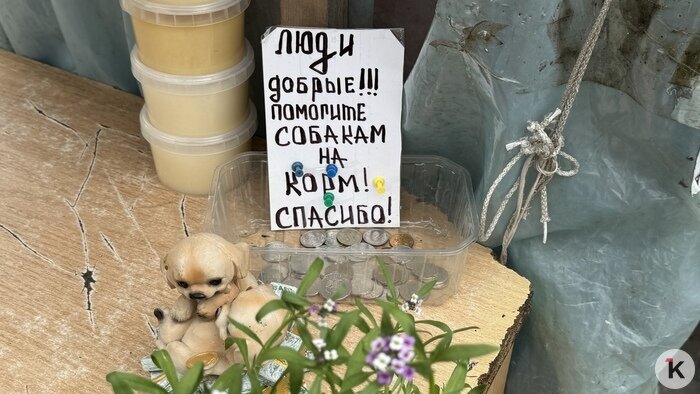 ЛЮДИ
ДОБРЫЕ!!!
ПОМОГИТЕ
СОБАКАМ
НА
КОРМ!
СПАСИБО!
K